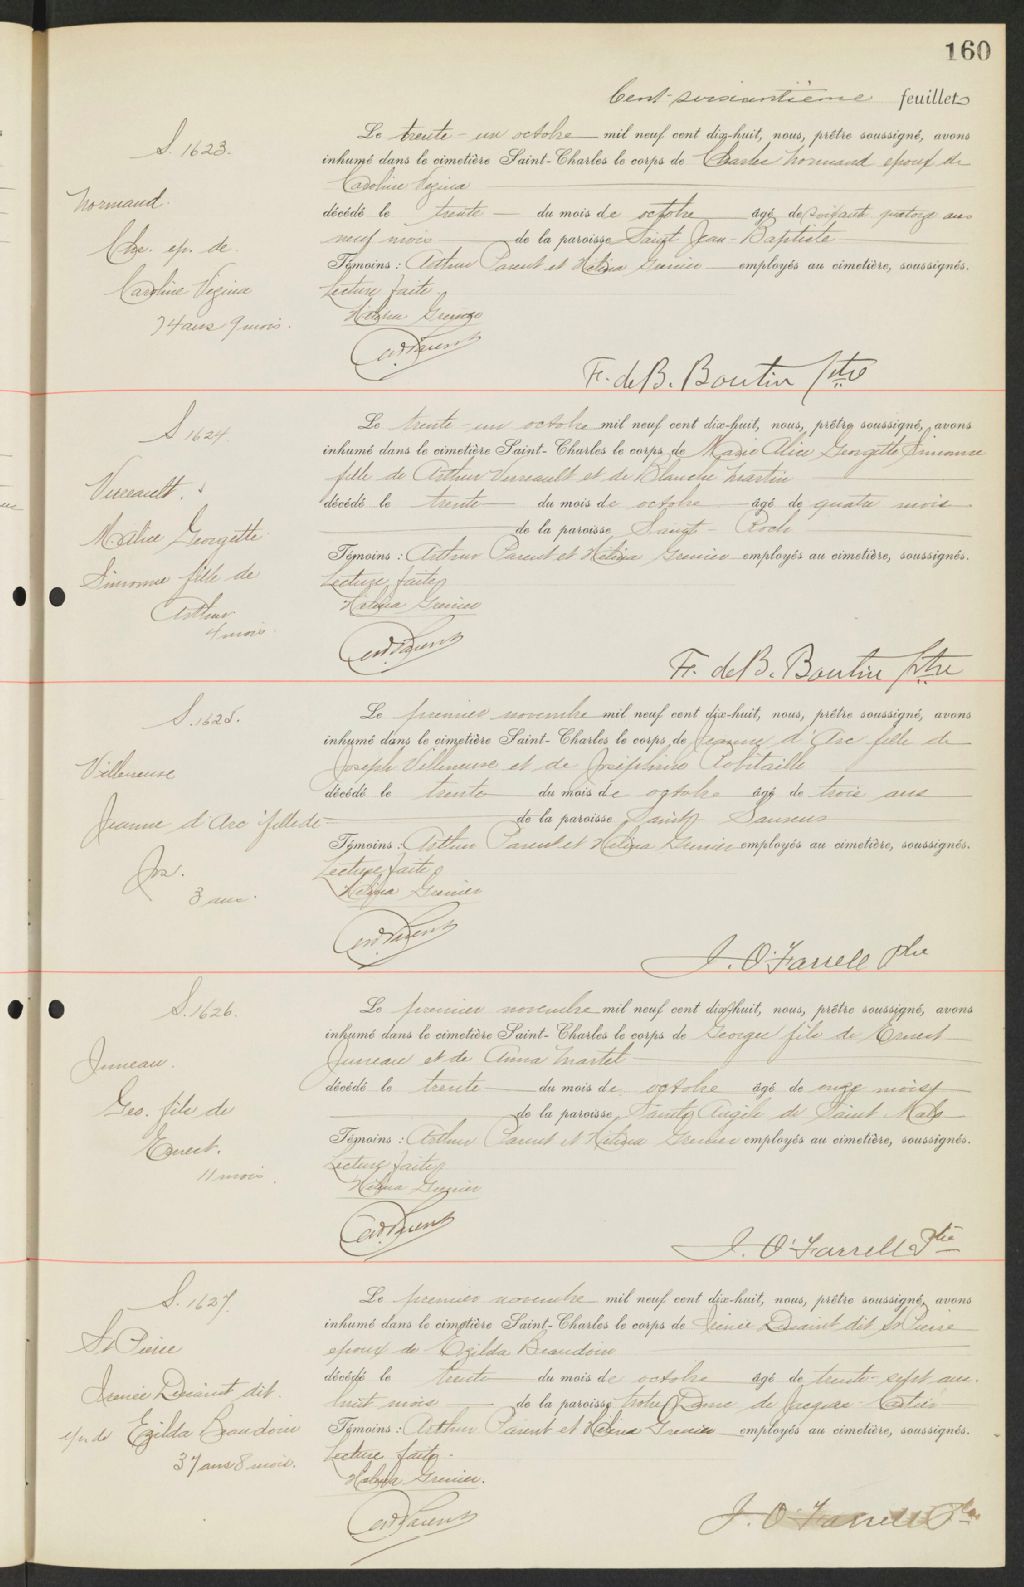 160
Cent-soixantième feuillet
S. 1623.
Normand.
Chs. ep. de.
Caroline Vézina
74 ans 9 mois.
Le trente-un octobre mil neuf cent dix-huit, nous, prêtre soussigné, avons
inhumé dans le cimetière Saint-Charles le corps de Charles Normand epoux de
Caroline Vézina
décédé le trente du mois de octobre âgé de soixante quatorze ans
neuf mois de la paroisse Saint Jean-Baptiste
Témoins : Arthur Parent et Hélina Grenier employés au cimetière, soussignés.
Lecture faite
Hélina Grenier
Art Parent
F. de B. Boutin ptre
S 1624.
Verreault.
M. Alice Georgette
Simonne fille de
Arthur
4 mois.
Le trente-un octobre mil neuf cent dix-huit, nous, prêtre soussigné, avons
inhumé dans le cimetière Saint-Charles le corps de Marie Alice Georgette Simonne
fille de Arthur Verreault et de Blanche Martin
décédé le trente du mois de octobre âgé de quatre mois
de la paroisse Saint-Roch
Témoins : Arthur Parent et Hélina Grenier employés au cimetière, soussignés.
Lecture faite
Hélina Grenier
Art Parent
F. de B. Boutin ptre
S. 1625.
Villeneuve
Jeanne d'Arc fille de
Jos.
3 ans.
Le premier novembre mil neuf cent dix-huit, nous, prêtre soussigné, avons
inhumé dans le cimetière Saint-Charles le corps de Jeanne d'Arc fille de
Joseph Villeneuve et de Joséphine Robitaille
décédé le trente du mois de octobre âgé de trois ans
de la paroisse Saint Sauveur
Témoins : Arthur Parent et Hélina Grenier employés au cimetière, soussignés.
Lecture faite
Hélina Grenier
Art Parent
J. O'Farrell ptre
S. 1626.
Juneau.
Geo. fils de
Ernest.
11 mois
Le premier novembre mil neuf cent dix-huit, nous, prêtre soussigné, avons
inhumé dans le cimetière Saint-Charles le corps de Georges fils de Ernest
Juneau et de Anna Martel
décédé le trente du mois de octobre âgé de onze mois
de la paroisse Sainte Angèle de Saint Malo
Témoins : Arthur Parent et Hélina Grenier employés au cimetière, soussignés.
Lecture faite
Hélina Grenier
Art Parent
J. O'Farrell Ptre
S. 1627.
St Pierre
Irenée Dessaint dit.
ep. de Exilda Beaudoin
37 ans 8 mois.
Le premier novembre mil neuf cent dix-huit, nous, prêtre soussigné, avons
inhumé dans le cimetière Saint-Charles le corps de Irenée Dessaint dit St Pierre
epoux de Exilda Beaudoin
décédé le trente du mois de octobre âgé de trente-sept ans.
huit mois de la paroisse Notre Dame de Jacques-Cartier
Témoins : Arthur Parent et Hélina Grenier employés au cimetière, soussignés.
Lecture faite.
Hélina Grenier.
Art Parent
J. O'Farrell Ptre